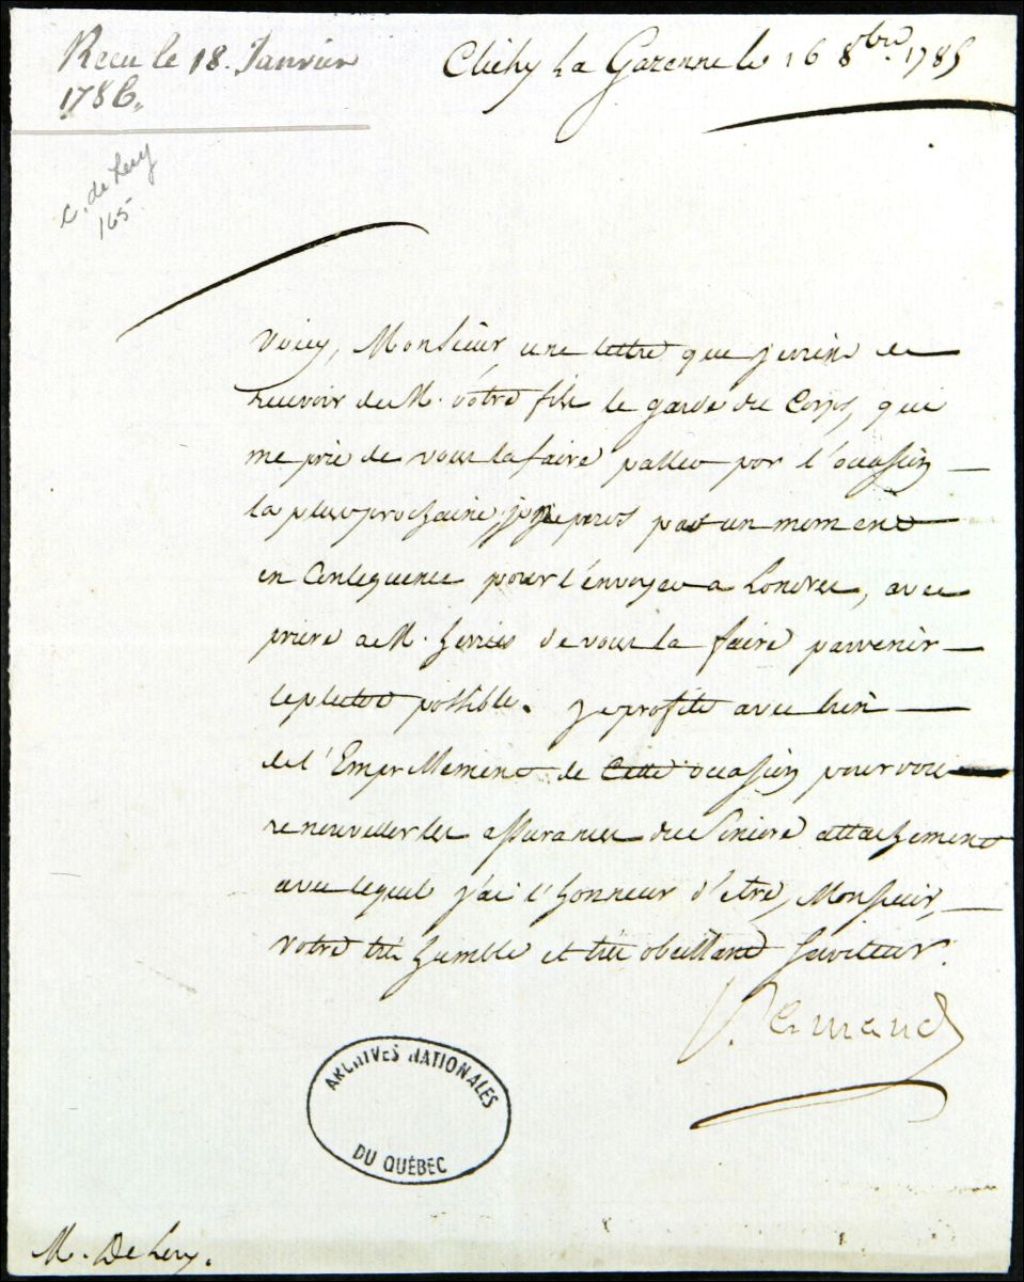 Recu le 18. Janvier
1786.
Clichy La Garenne le 16 8bre. 1785
C. de Lery
165
Voicy, Monsieur une lettre que je viens de
recevoir de M. vôtre fils le garde du Corps, qui
me prie de vous la faire passer par l'occasion
la plus prochaine; je ne perds pas un moment
en Consequence pour l'envoyer a Londres, avec
priere a M. de vous la faire parvenir
le plutot possible. Je profite avec bien
de l'Empressement de Cette occasion pour vous
renouveller les assurances du Sincere attachement
avec lequel j'ai l'honneur d'etre, Monsieur,
votre très humble et très obeissant serviteur.
ARCHIVES NATIONALES
DU QUÉBEC
M. De Lery.